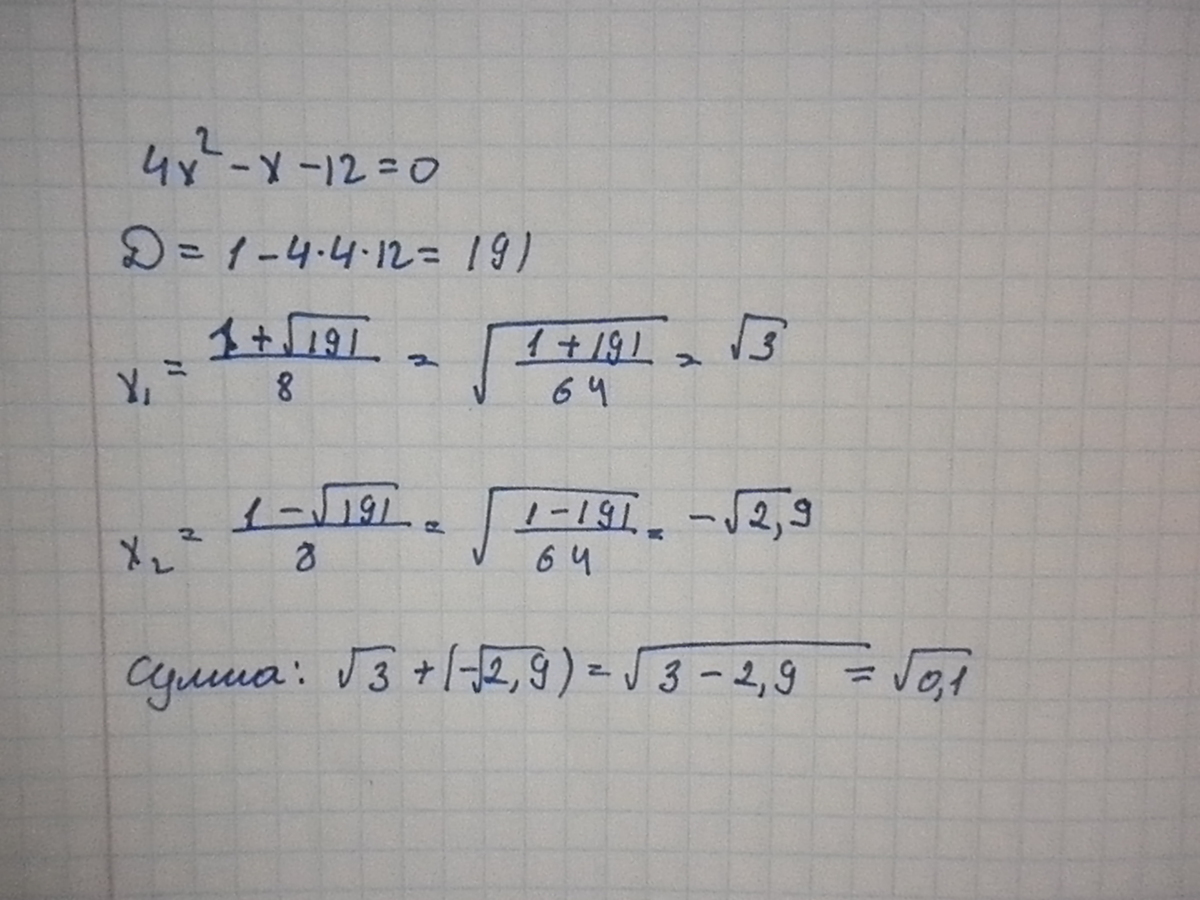 4x² - x - 12 = 0
D = 1 - 4·4·12 = 191
x₁ = (1 + √191)/8 = √((1 + 191)/64) = √3
x₂ = (1 - √191)/8 = √((1 - 191)/64) = -√2,9
Сумма: √3 + (-√2,9) = √(3 - 2,9) = √0,1